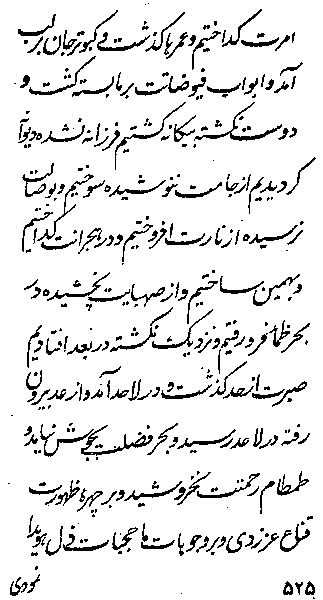 امرت گداختیم و عمرها گذشت و کبوتر جان بر لب
آمد و ابواب فیوضاتت بر ما بسته گشت و
دوست نگشته بیگانه گشتیم فرزانه نشده دیوانه
گردیدیم از جامت ننوشیده سوختیم و بوصالت
نرسیده از نارت افروختیم و در هجرانت گداختیم
و بهمین ساختیم و از صهبایت نچشیده در
بحر ظما فرو رفتیم و نزدیک نگشته در بعد افتادیم
صبرت از حد گذشت و در لاحد آمد و از عد بیرون
رفته در لاعد رسید و بحر فضلت بجوش نیاید و
طمطام رحمتت نخروشید و بر چهرهٔ ظهورت
قناع عز زدی و بر وجوبات ما حجبات ذل هویدا
۵۲۵
نمودی